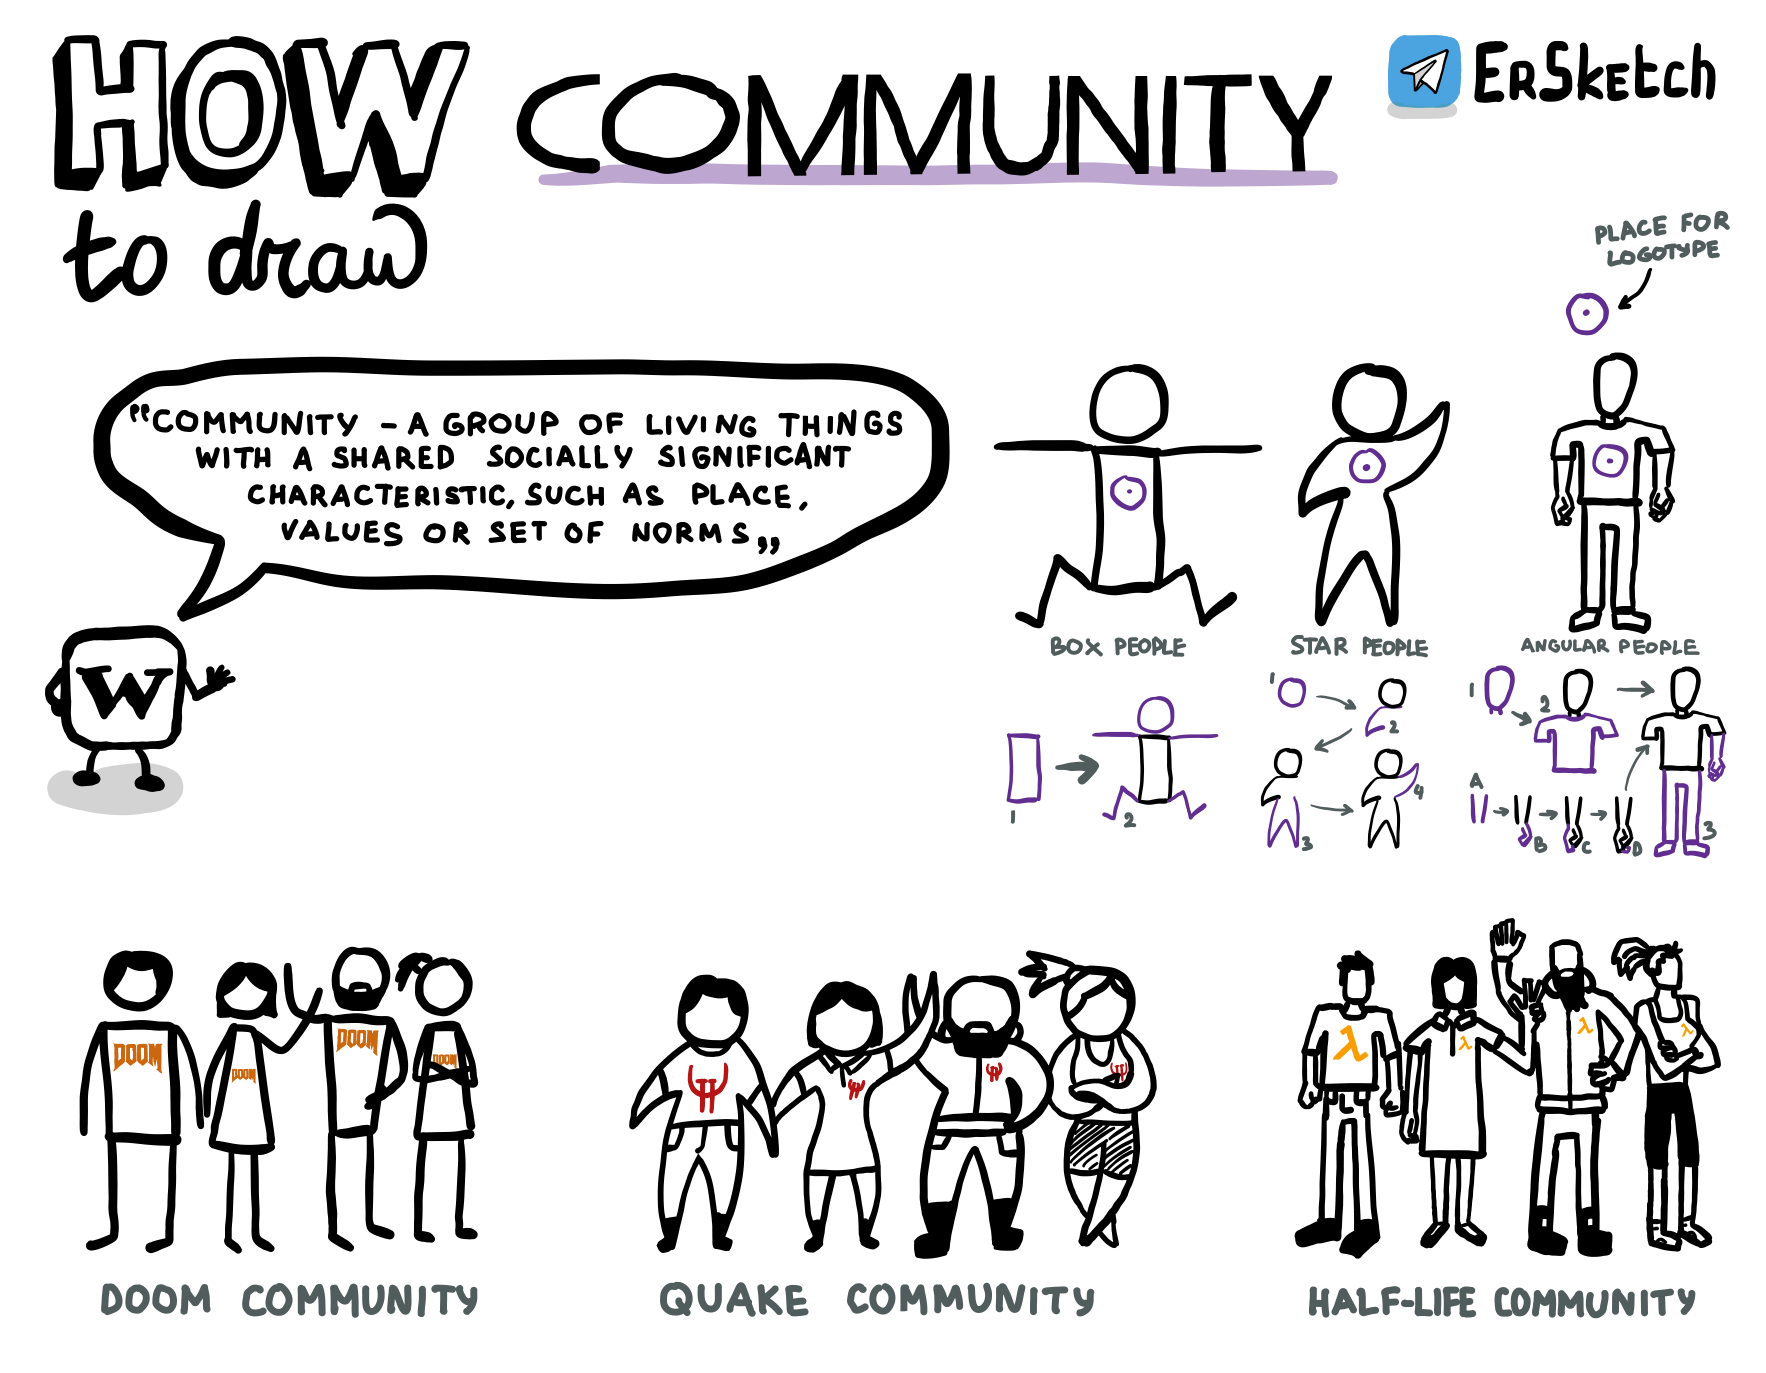 HOW
to draw
COMMUNITY
ErSketch
PLACE FOR
LOGOTYPE
"COMMUNITY - A GROUP OF LIVING THINGS
WITH A SHARED SOCIALLY SIGNIFICANT
CHARACTERISTIC, SUCH AS PLACE,
VALUES OR SET OF NORMS„
W
BOX PEOPLE
STAR PEOPLE
ANGULAR PEOPLE
1
2
1
2
3
4
1
2
3
A
B
C
D
DOOM
DOOM
DOOM
DOOM
λ
λ
λ
λ
DOOM COMMUNITY
QUAKE COMMUNITY
HALF-LIFE COMMUNITY